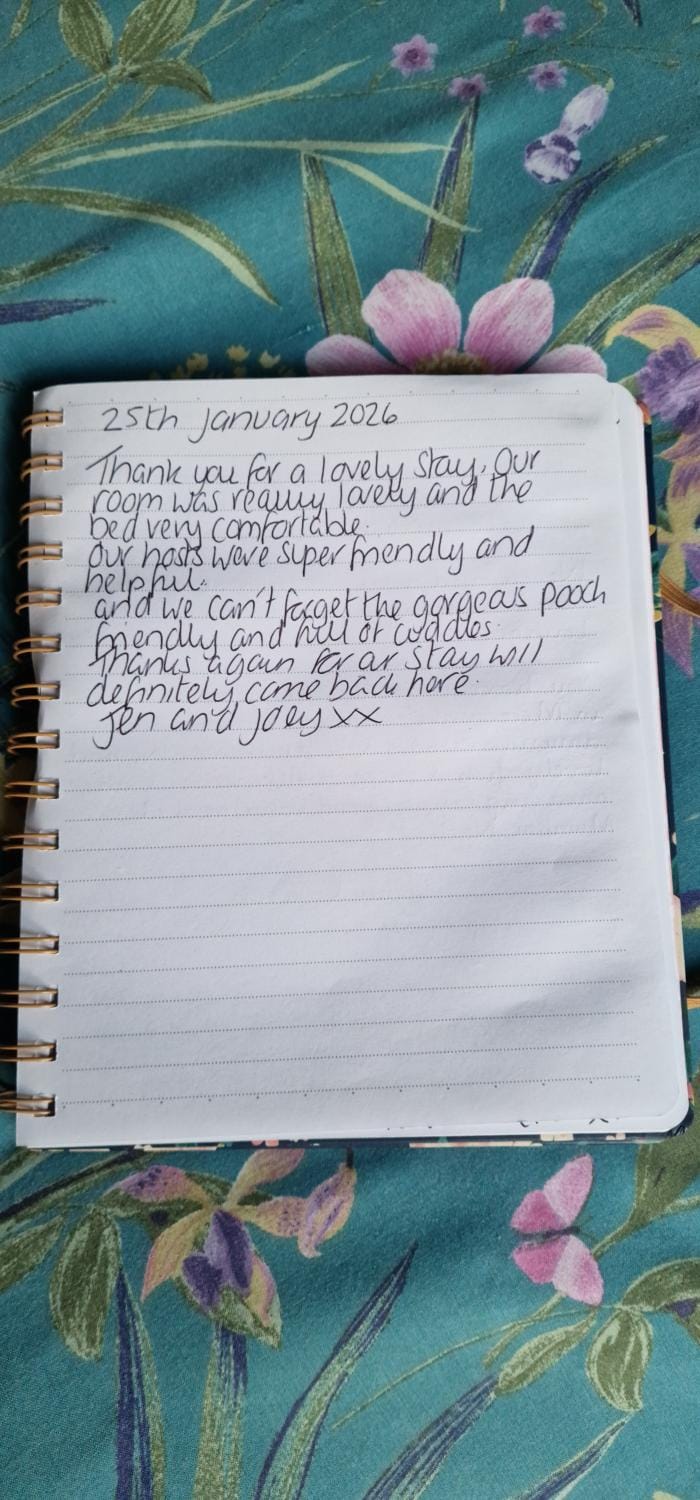 25th January 2026
Thank you for a lovely stay. Our
room was really lovely and the
bed very comfortable.
Our hosts were super friendly and
helpful.
and we can't forget the gorgeous pooch
friendly and full of cuddles.
Thanks again for our stay will
definitely come back here.
Jen and Joey xx